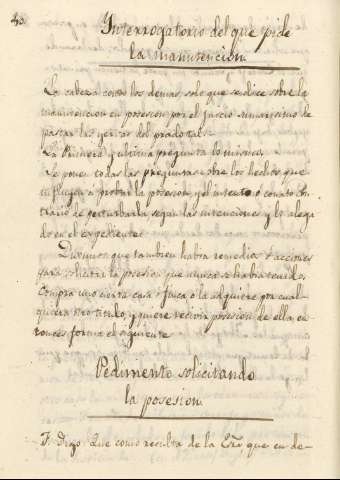 40.
Interrogatorio del que pide
la manutencion
La cabeza como los demas, solo que se dice sobre la
manutencion en posesion por el juicio sumarisimo de
pastar las yervas del prado tal.
La Primera y ultima pregunta lo mismo.
Se ponen todas las preguntas sobre los hechos que
influyen a probar la posesion, y el intento ó conato con-
trario de perturbarla segun las intenciones y lo alega-
do en el expediente.
Digimos que tambien habia remedios ó acciones
para solicitar la posesion que nunca se habia tenido.
Compra uno cierta casa ó finca ó la adquiere por cual-
quiera otro titulo, y quiere recivir posesion de ella en-
tonces forma el siguiente
Pedimento solicitando
la posesion
F. Digo: Que como resulta de la Esra. que en de-